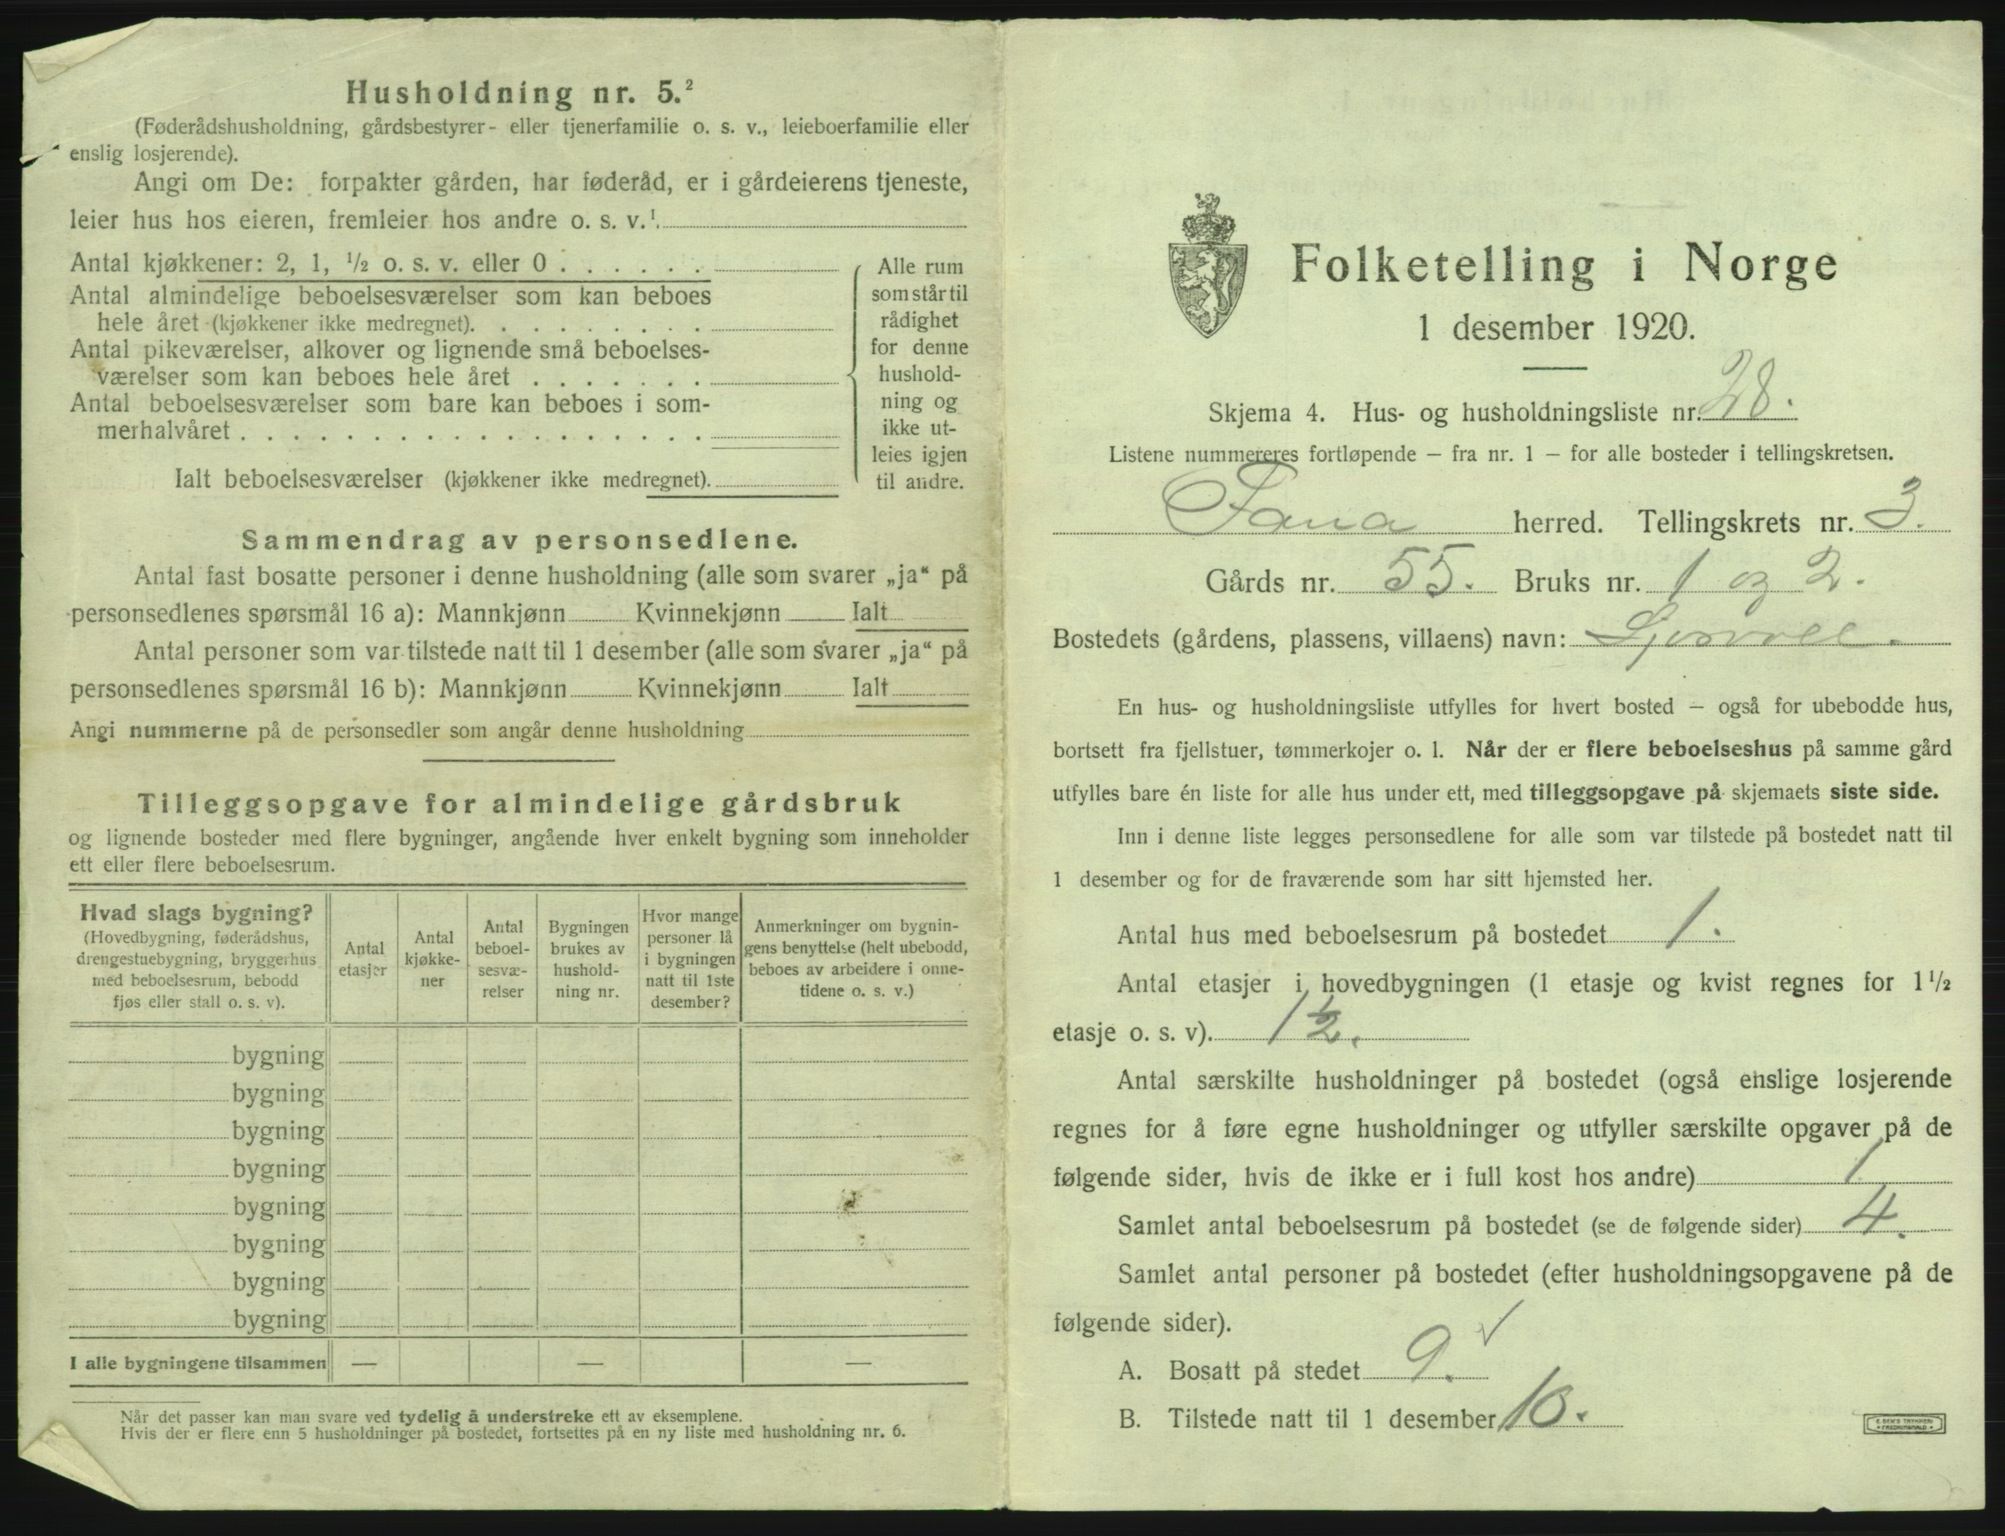 Husholdning nr. 5.²
(Føderådshusholdning, gårdsbestyrer- eller tjenerfamilie o. s. v., leieboerfamilie eller
enslig losjerende).
Angi om De: forpakter gården, har føderåd, er i gårdeierens tjeneste,
leier hus hos eieren, fremleier hos andre o. s. v.¹.
Antal kjøkkener: 2, 1, ½ o. s. v. eller 0 . . . . . .
Antal almindelige beboelsesværelser som kan beboes
hele året (kjøkkener ikke medregnet). . . . . . . . .
Antal pikeværelser, alkover og lignende små beboelses-
værelser som kan beboes hele året . . . . . . .
Antal beboelsesværelser som bare kan beboes i som-
merhalvåret . . . . . . . . . . . . . . . . . .
Ialt beboelsesværelser (kjøkkener ikke medregnet).
Alle rum
som står til
rådighet
for denne
hushold-
ning og
ikke ut-
leies igjen
til andre.
Sammendrag av personsedlene.
Antal fast bosatte personer i denne husholdning (alle som svarer „ja“ på
personsedlenes spørsmål 16 a): Mannkjønn Kvinnekjønn Ialt
Antal personer som var tilstede natt til 1 desember (alle som svarer „ja“ på
personsedlenes spørsmål 16 b): Mannkjønn Kvinnekjønn Ialt
Angi nummerne på de personsedler som angår denne husholdning
Tilleggsopgave for almindelige gårdsbruk
og lignende bosteder med flere bygninger, angående hver enkelt bygning som inneholder
ett eller flere beboelsesrum.
Hvad slags bygning?
(Hovedbygning, føderådshus,
drengestuebygning, bryggerhus
med beboelsesrum, bebodd
fjøs eller stall o. s. v).
Antal
etasjer
Antal
kjøkke-
ner
Antal
beboel-
sesvæ-
relser
Bygningen
brukes av
hushold-
ning nr.
Hvor mange
personer lå
i bygningen
natt til 1ste
desember?
Anmerkninger om bygnin-
gens benyttelse (helt ubebodd,
beboes av arbeidere i onne-
tidene o. s. v.)
bygning
bygning
bygning
bygning
bygning
bygning
bygning
bygning
I alle bygningene tilsammen — — —
Når det passer kan man svare ved tydelig å understreke ett av eksemplene.
Hvis der er flere enn 5 husholdninger på bostedet, fortsettes på en ny liste med husholdning nr. 6.
Folketelling i Norge
1 desember 1920.
Skjema 4. Hus- og husholdningsliste nr. 28.
Listene nummereres fortløpende – fra nr. 1 – for alle bosteder i tellingskretsen.
Fana herred. Tellingskrets nr. 3.
Gårds nr. 55. Bruks nr. 1 og 2.
Bostedets (gårdens, plassens, villaens) navn:
En hus- og husholdningsliste utfylles for hvert bosted – også for ubebodde hus,
bortsett fra fjellstuer, tømmerkojer o. l. Når der er flere beboelseshus på samme gård
utfylles bare én liste for alle hus under ett, med tilleggsopgave på skjemaets siste side.
Inn i denne liste legges personsedlene for alle som var tilstede på bostedet natt til
1 desember og for de fraværende som har sitt hjemsted her.
Antal hus med beboelsesrum på bostedet 1.
Antal etasjer i hovedbygningen (1 etasje og kvist regnes for 1½
etasje o. s. v). 1½.
Antal særskilte husholdninger på bostedet (også enslige losjerende
regnes for å føre egne husholdninger og utfyller særskilte opgaver på de
følgende sider, hvis de ikke er i full kost hos andre) 1
Samlet antal beboelsesrum på bostedet (se de følgende sider) 4.
Samlet antal personer på bostedet (efter husholdningsopgavene på de
følgende sider).
A. Bosatt på stedet 9. ✓
B. Tilstede natt til 1 desember 10.